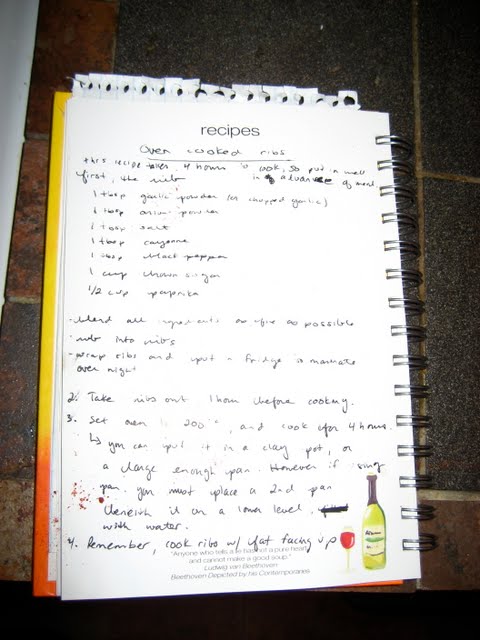 recipes
Oven cooked ribs
this recipe takes 4 hours to cook, so put in well
first, the rub in advance of meal.
1 tbsp garlic powder (or chopped garlic)
1 tbsp onion powder
1 tbsp salt
1 tbsp cayenne
1 tbsp black pepper
1 cup brown sugar
1/2 cup paprika
-blend all ingredients as fine as possible
-rub into ribs
-wrap ribs and put in fridge to marinate
over night
2. Take ribs out 1 hour before cooking.
3. Set oven to 200°, and cook for 4 hours.
↳ you can put it in a clay pot, or
a large enough pan. However if using
pan, you must place a 2nd pan
beneath it on a lower level
with water.
4. Remember, cook ribs w/ fat facing up
"Anyone who tells a lie has not a pure heart
and cannot make a good soup."
Ludwig van Beethoven
Beethoven Depicted by his Contemporaries